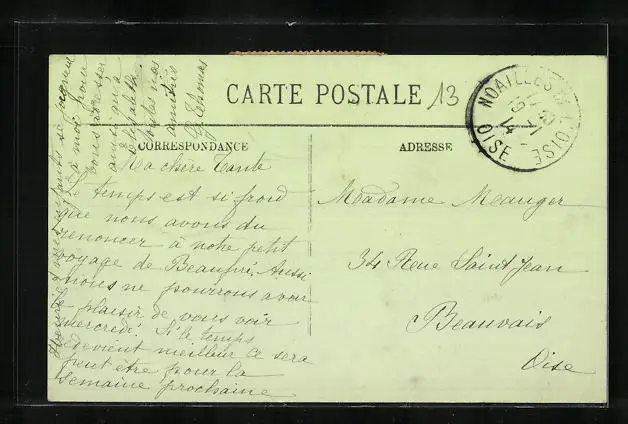 CARTE POSTALE 13
CORRESPONDANCE
ADRESSE
Ma chère Tante
Le temps est si froid
que nous avons du
renoncer à notre petit
voyage de Beaupré. Aussi
nous ne pourrons avoir
le plaisir de vous voir
mercredi. Si le temps
redevient meilleur ce sera
peut être pour la
semaine prochaine
enfants se joignent
à moi pour
vous adresser
ainsi qu'à
toutes nos
amitiés
Madame Meauger
34 Rue Saint Jean
Beauvais
Oise
NOAILLES
OISE
14